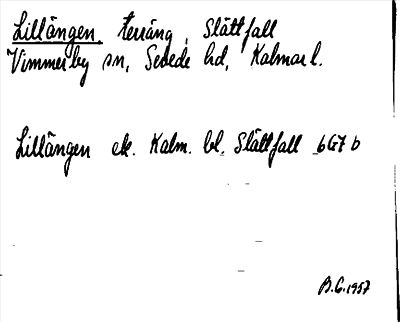 Lillängen, terräng, Slättfall
Vimmerby sn, Sevede hd, Kalmar l.
Lillängen ek. Kalm. bl. Slättfall 6G7 b
B.G. 1957